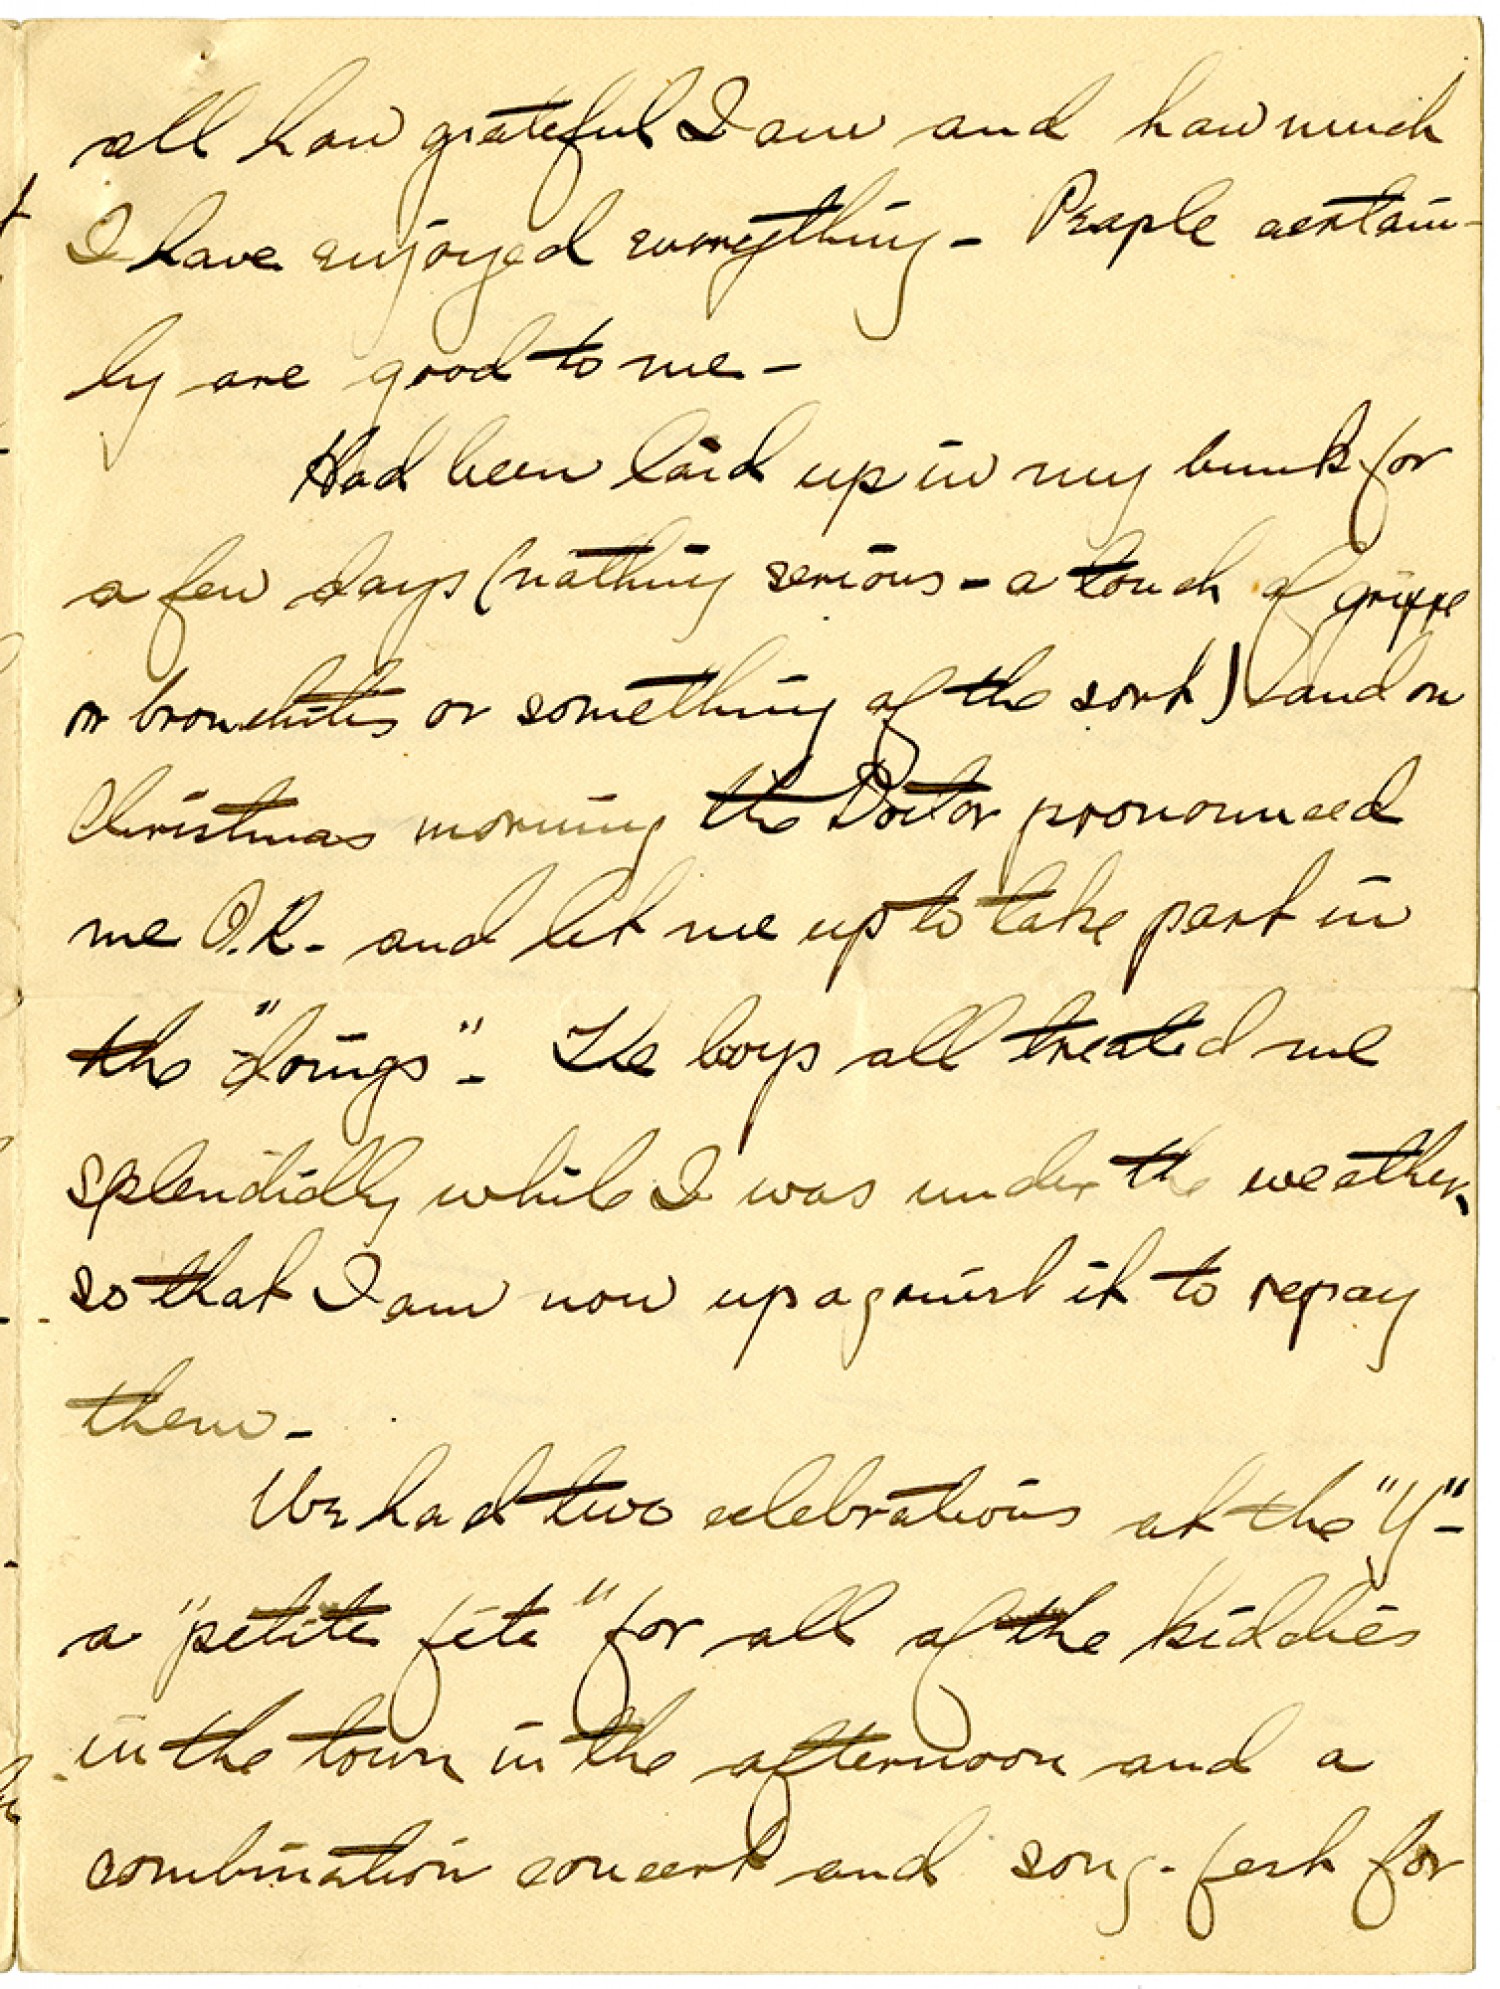 all how grateful I am and how much
I have enjoyed everything - People certain-
ly are good to me -
Had been laid up in my bunk for
a few days (nothing serious - a touch of grippe
or bronchitis or something of the sort) and on
Christmas morning the Doctor pronounced
me O.K. - and let me up to take part in
the "doings" - The boys all treated me
splendidly while I was under the weather,
so that I am now up against it to repay
them -
We had two celebrations at the "Y" -
a "petite fête" for all of the kiddies
in the town in the afternoon and a
combination concert and song-fest for